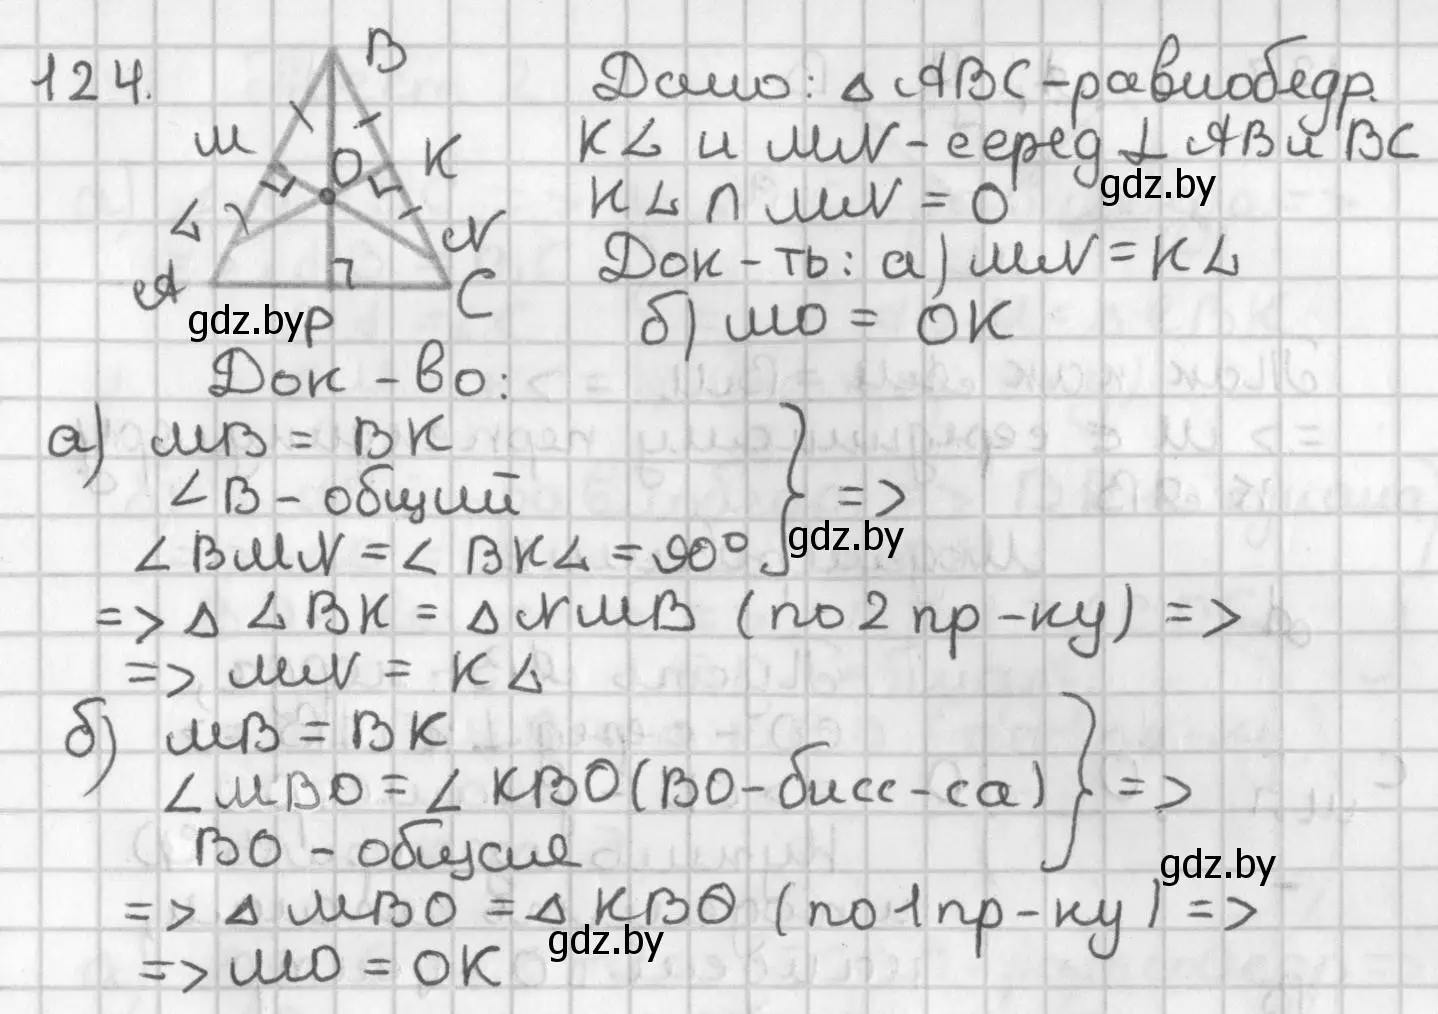 124.
B
M
O
K
L
N
A
C
P
gdz.by
Дано: △ ABC - равнобедр.
KL и MN - серед ⊥ AB и BC
gdz.by
KL ∩ MN = O
Док - ть: а) MN = KL
б) MO = OK
Док - во:
а) MB = BK
∠B - общий
∠BMN = ∠BKL = 90°
} =>
gdz.by
=> △ LBK = △ NMB (по 2 пр - ку) =>
=> MN = KL
б) MB = BK
∠MBO = ∠KBO (BO - бисс - са)
BO - общая
} =>
gdz.by
=> △ MBO = △ KBO (по 1 пр - ку) =>
gdz.by
=> MO = OK